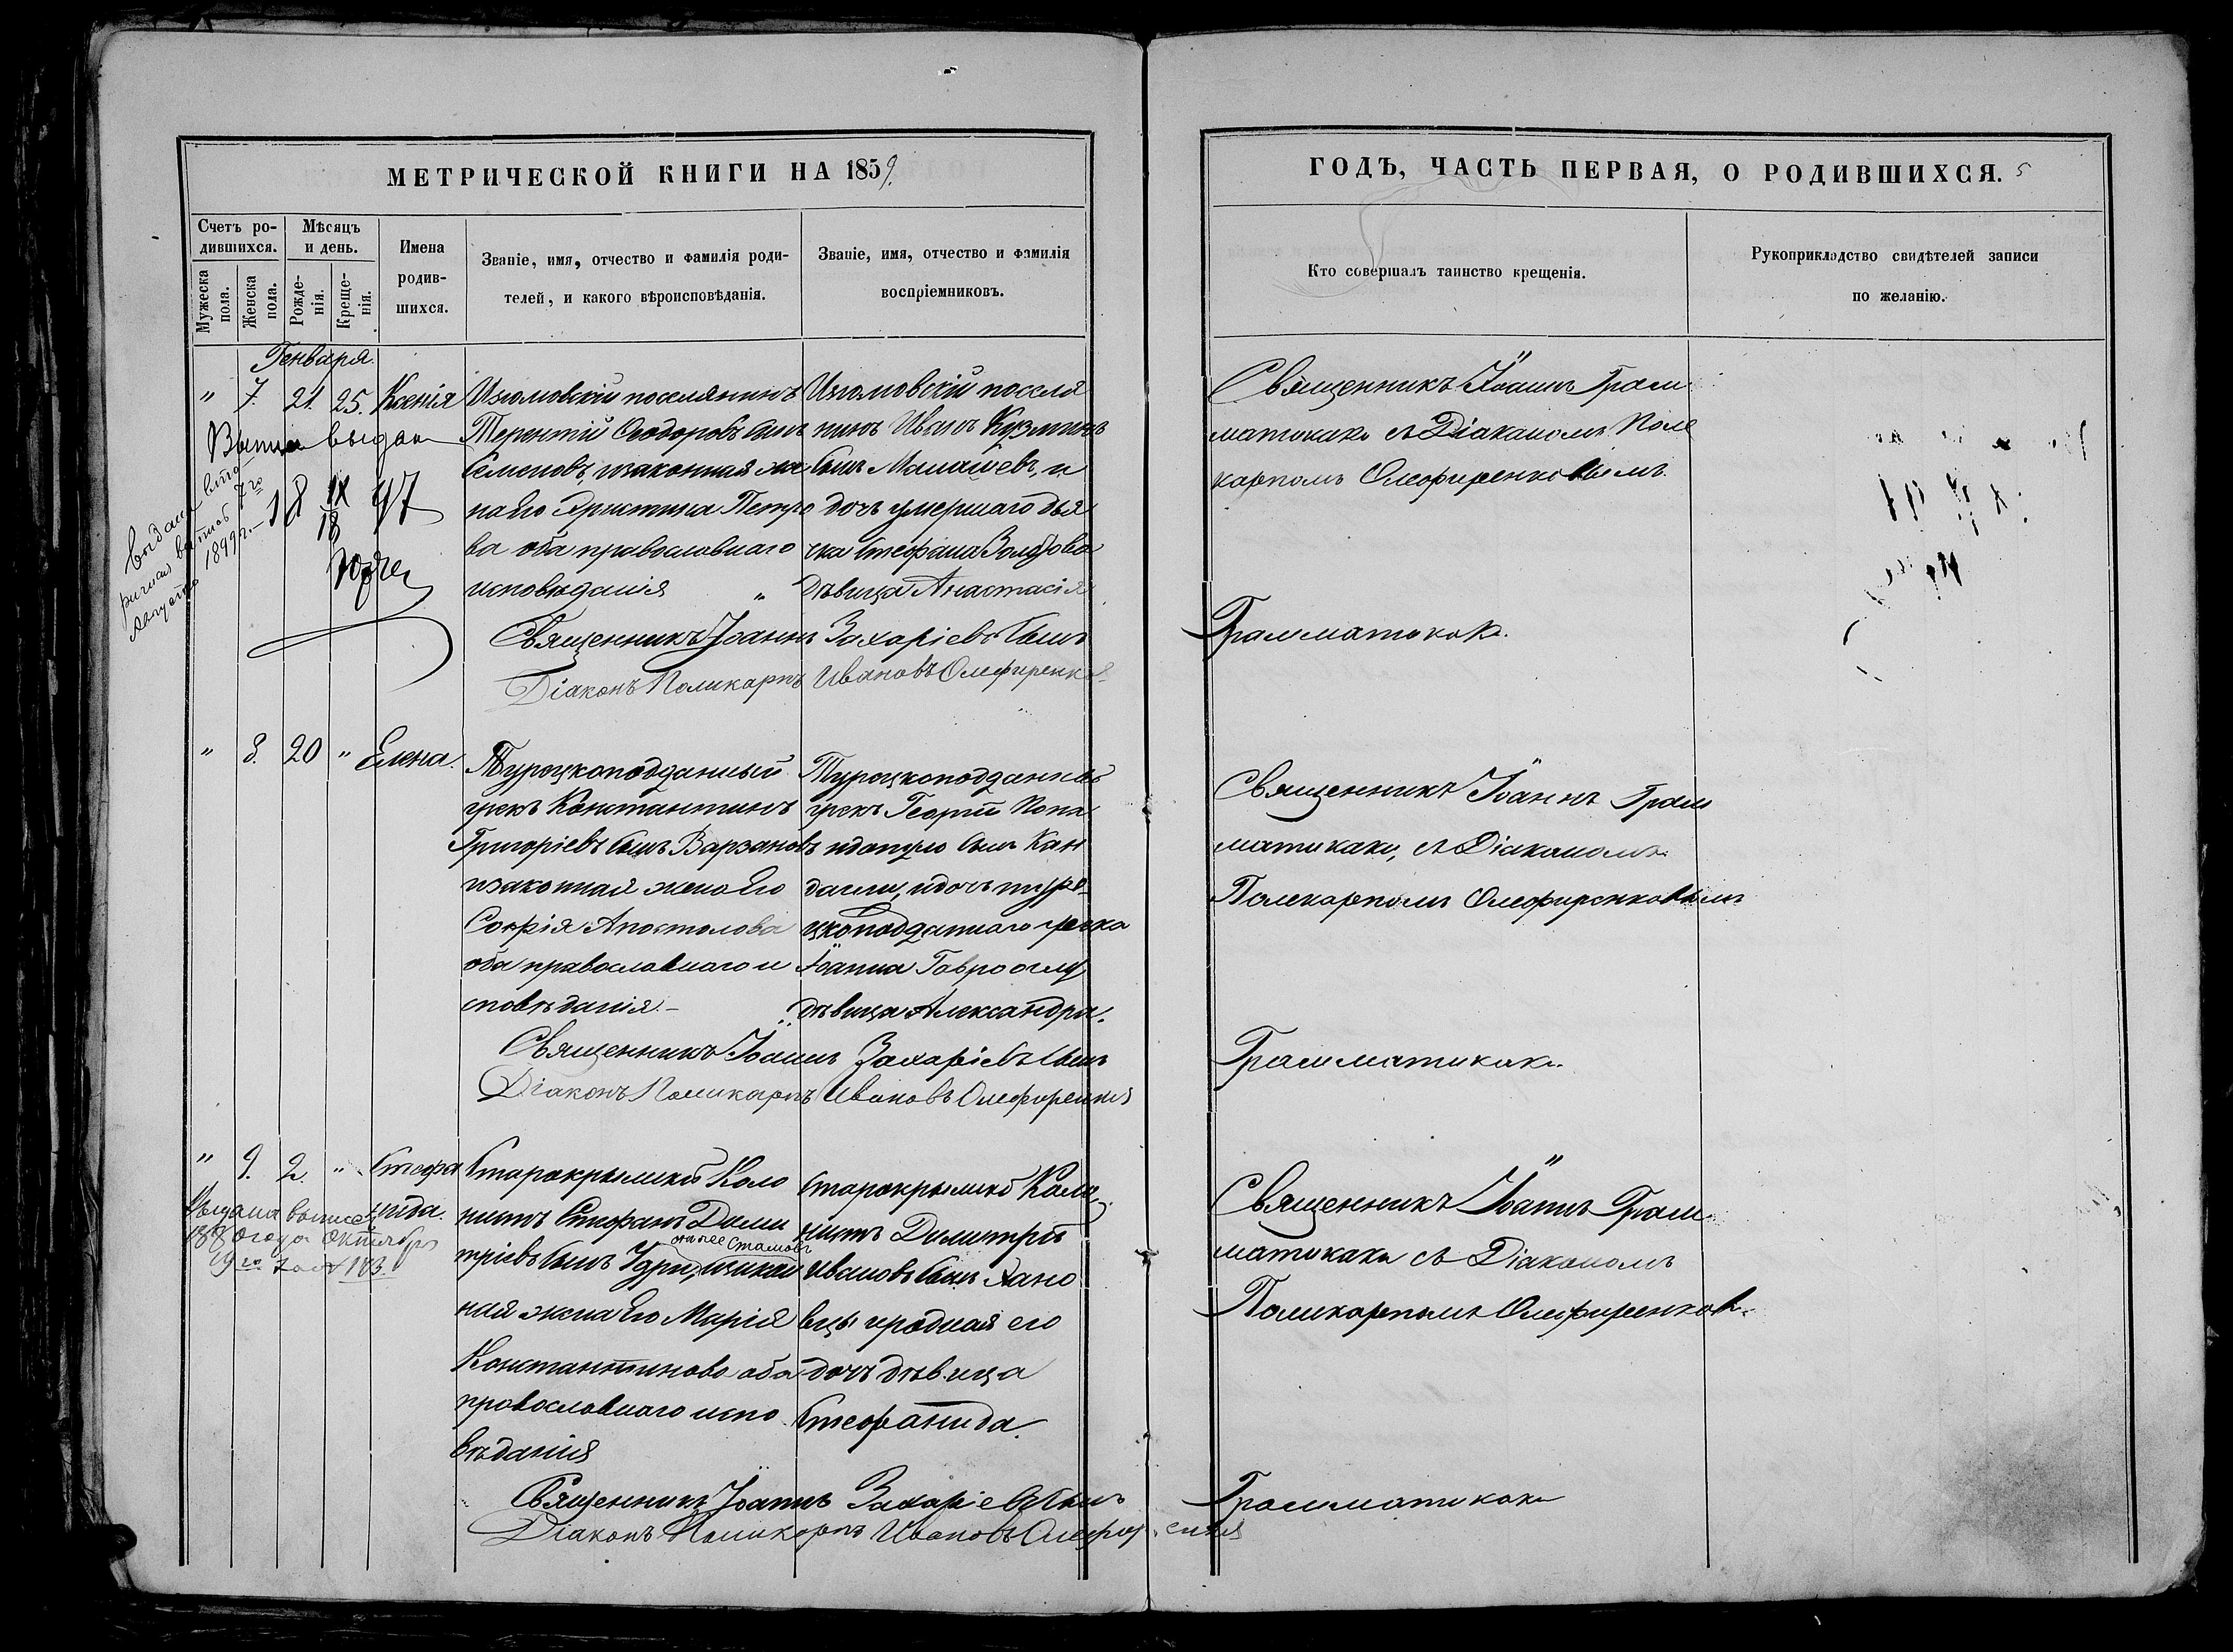 МЕТРИЧЕСКОЙ КНИГИ НА 1859.
Счетъ ро-
дившихся.
Мужеска
пола.
Женска
пола.
Мѣсяцъ
и день.
Рожде-
нія.
Креще-
нія.
Имена
родив-
шихся.
Званіе, имя, отчество и фамилія роди-
телей, и какого вѣроисповѣданія.
Званіе, имя, отчество и фамилія
воспріемниковъ.
Генваря
" 7. 21. 25. Ксенія
Изюмовскій поселянинъ
Терентій Ѳеодоровъ сынъ
Семеновъ, изаконная же
на Его Христина Петро
ва оба православнаго
исповѣданія "
Изюмовскій поселя
нинъ Иванъ Кузминъ
сынъ и
дочь умершаго дья
чка Стефана
дѣвица Анастасія
Священникъ Іоаннъ Захаріевъ сынъ
Діаконъ Поликарпъ Ивановъ Олефиренков
выдан
18 IX 97
18
выдана
1899 г.
" 8. 20 " Елена.
Турецкоподданный
грекъ Константинъ
Григоріевъ сынъ Варзановъ
изаконная жена Его
Софія Апостолова
оба православнаго и
сповѣданія.-
Турецкоподданный
грекъ Георгій Попа
сынъ Кан
идочь туре
цкоподданнаго грека
Іоанна Гавро оглу
дѣвица Александра.
Священникъ Іоаннъ Захаріевъ сынъ
Діаконъ Поликарпъ Ивановъ Олефиренко
" 9. 2. " Стефа
нида.
Старокрымскій Коло
нистъ Стефанъ Дими
тріевъ сынъ
онъ же Стамовъ
ная жена Его Марія
Константинова оба
православнаго испо
вѣданія
Старокрымскій Коло
нистъ Димитрій
Ивановъ сынъ Хано
вцы иродная его
дочь дѣвица
Стефанида.
Выдана выпись
1880 года Октября
19го за № 183.
Священникъ Іоаннъ Захаріевъ сынъ
Діаконъ Поликарпъ Ивановъ Олефиренко
ГОДЪ, ЧАСТЬ ПЕРВАЯ, О РОДИВШИХСЯ. 5
Кто совершалъ таинство крещенія.
Рукоприкладство свидѣтелей записи
по желанію.
Священникъ Іоаннъ Грам
матикаки съ Діакономъ Поли
карпомъ Олефиренковымъ
Грамматикаки.
Священникъ Іоаннъ Грам
матикаки, съ Діакономъ
Поликарпомъ Олефиренковымъ
Грамматикаки.
Священникъ Іоаннъ Грам
матикаки съ Діакономъ
Поликарпомъ Олефиренков.
Грамматикаки